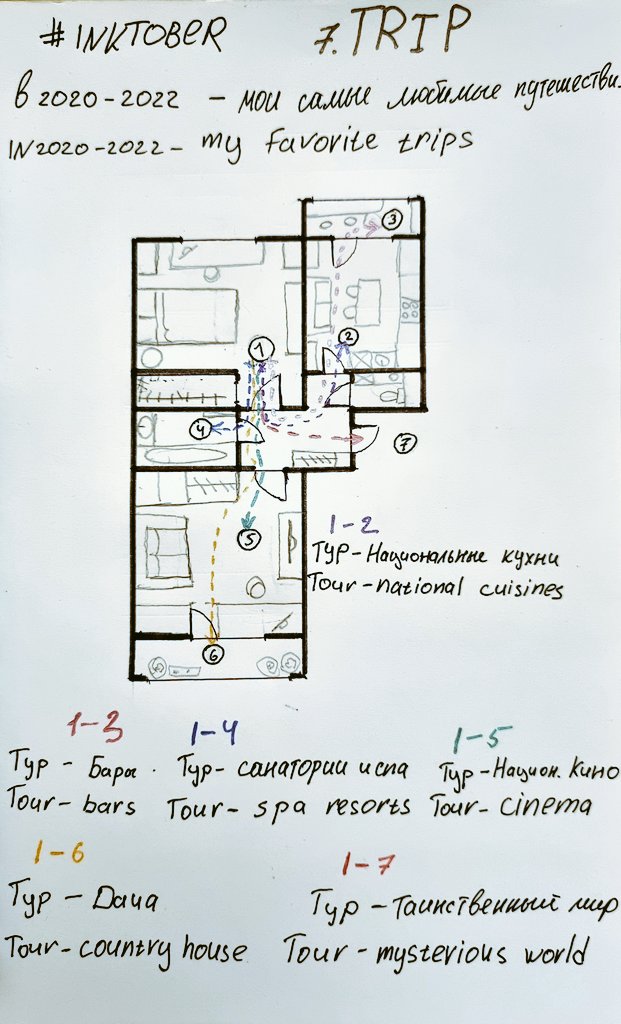 #INKTOBER 7. TRIP
в 2020-2022 - мои самые любимые путешестви
IN 2020-2022 - my favorite trips
3
1
2
4
7
5
6
1-2
Тур - Национальные кухни
Tour - national cuisines
1-3 1-4 1-5
Тур - Бары. Тур - санатории и спа Тур - Национ. Кино
Tour - bars Tour - spa resorts Tour - cinema
1-6 1-7
Тур - Дача Тур - Таинственный мир
Tour - country house Tour - mysterious world